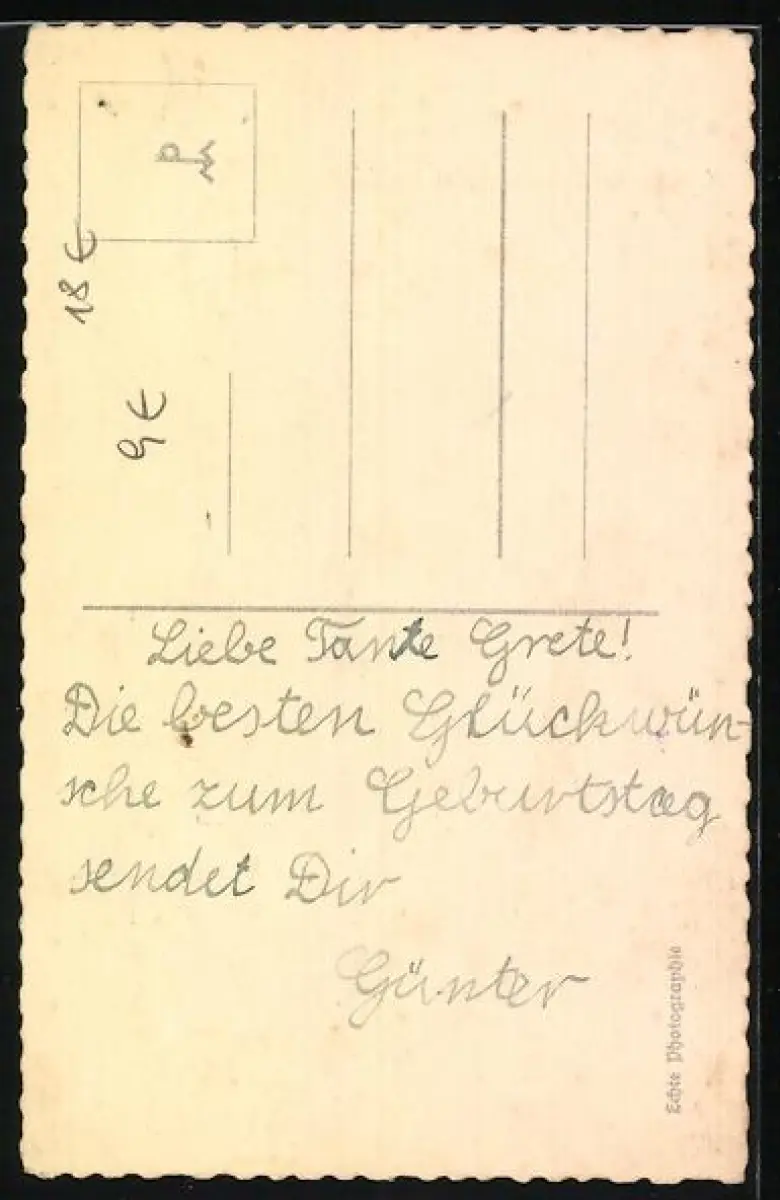 18 €
9 €
Liebe Tante Grete!
Die besten Glückwün-
sche zum Geburtstag
sendet Dir
Günter
Echte Photographie